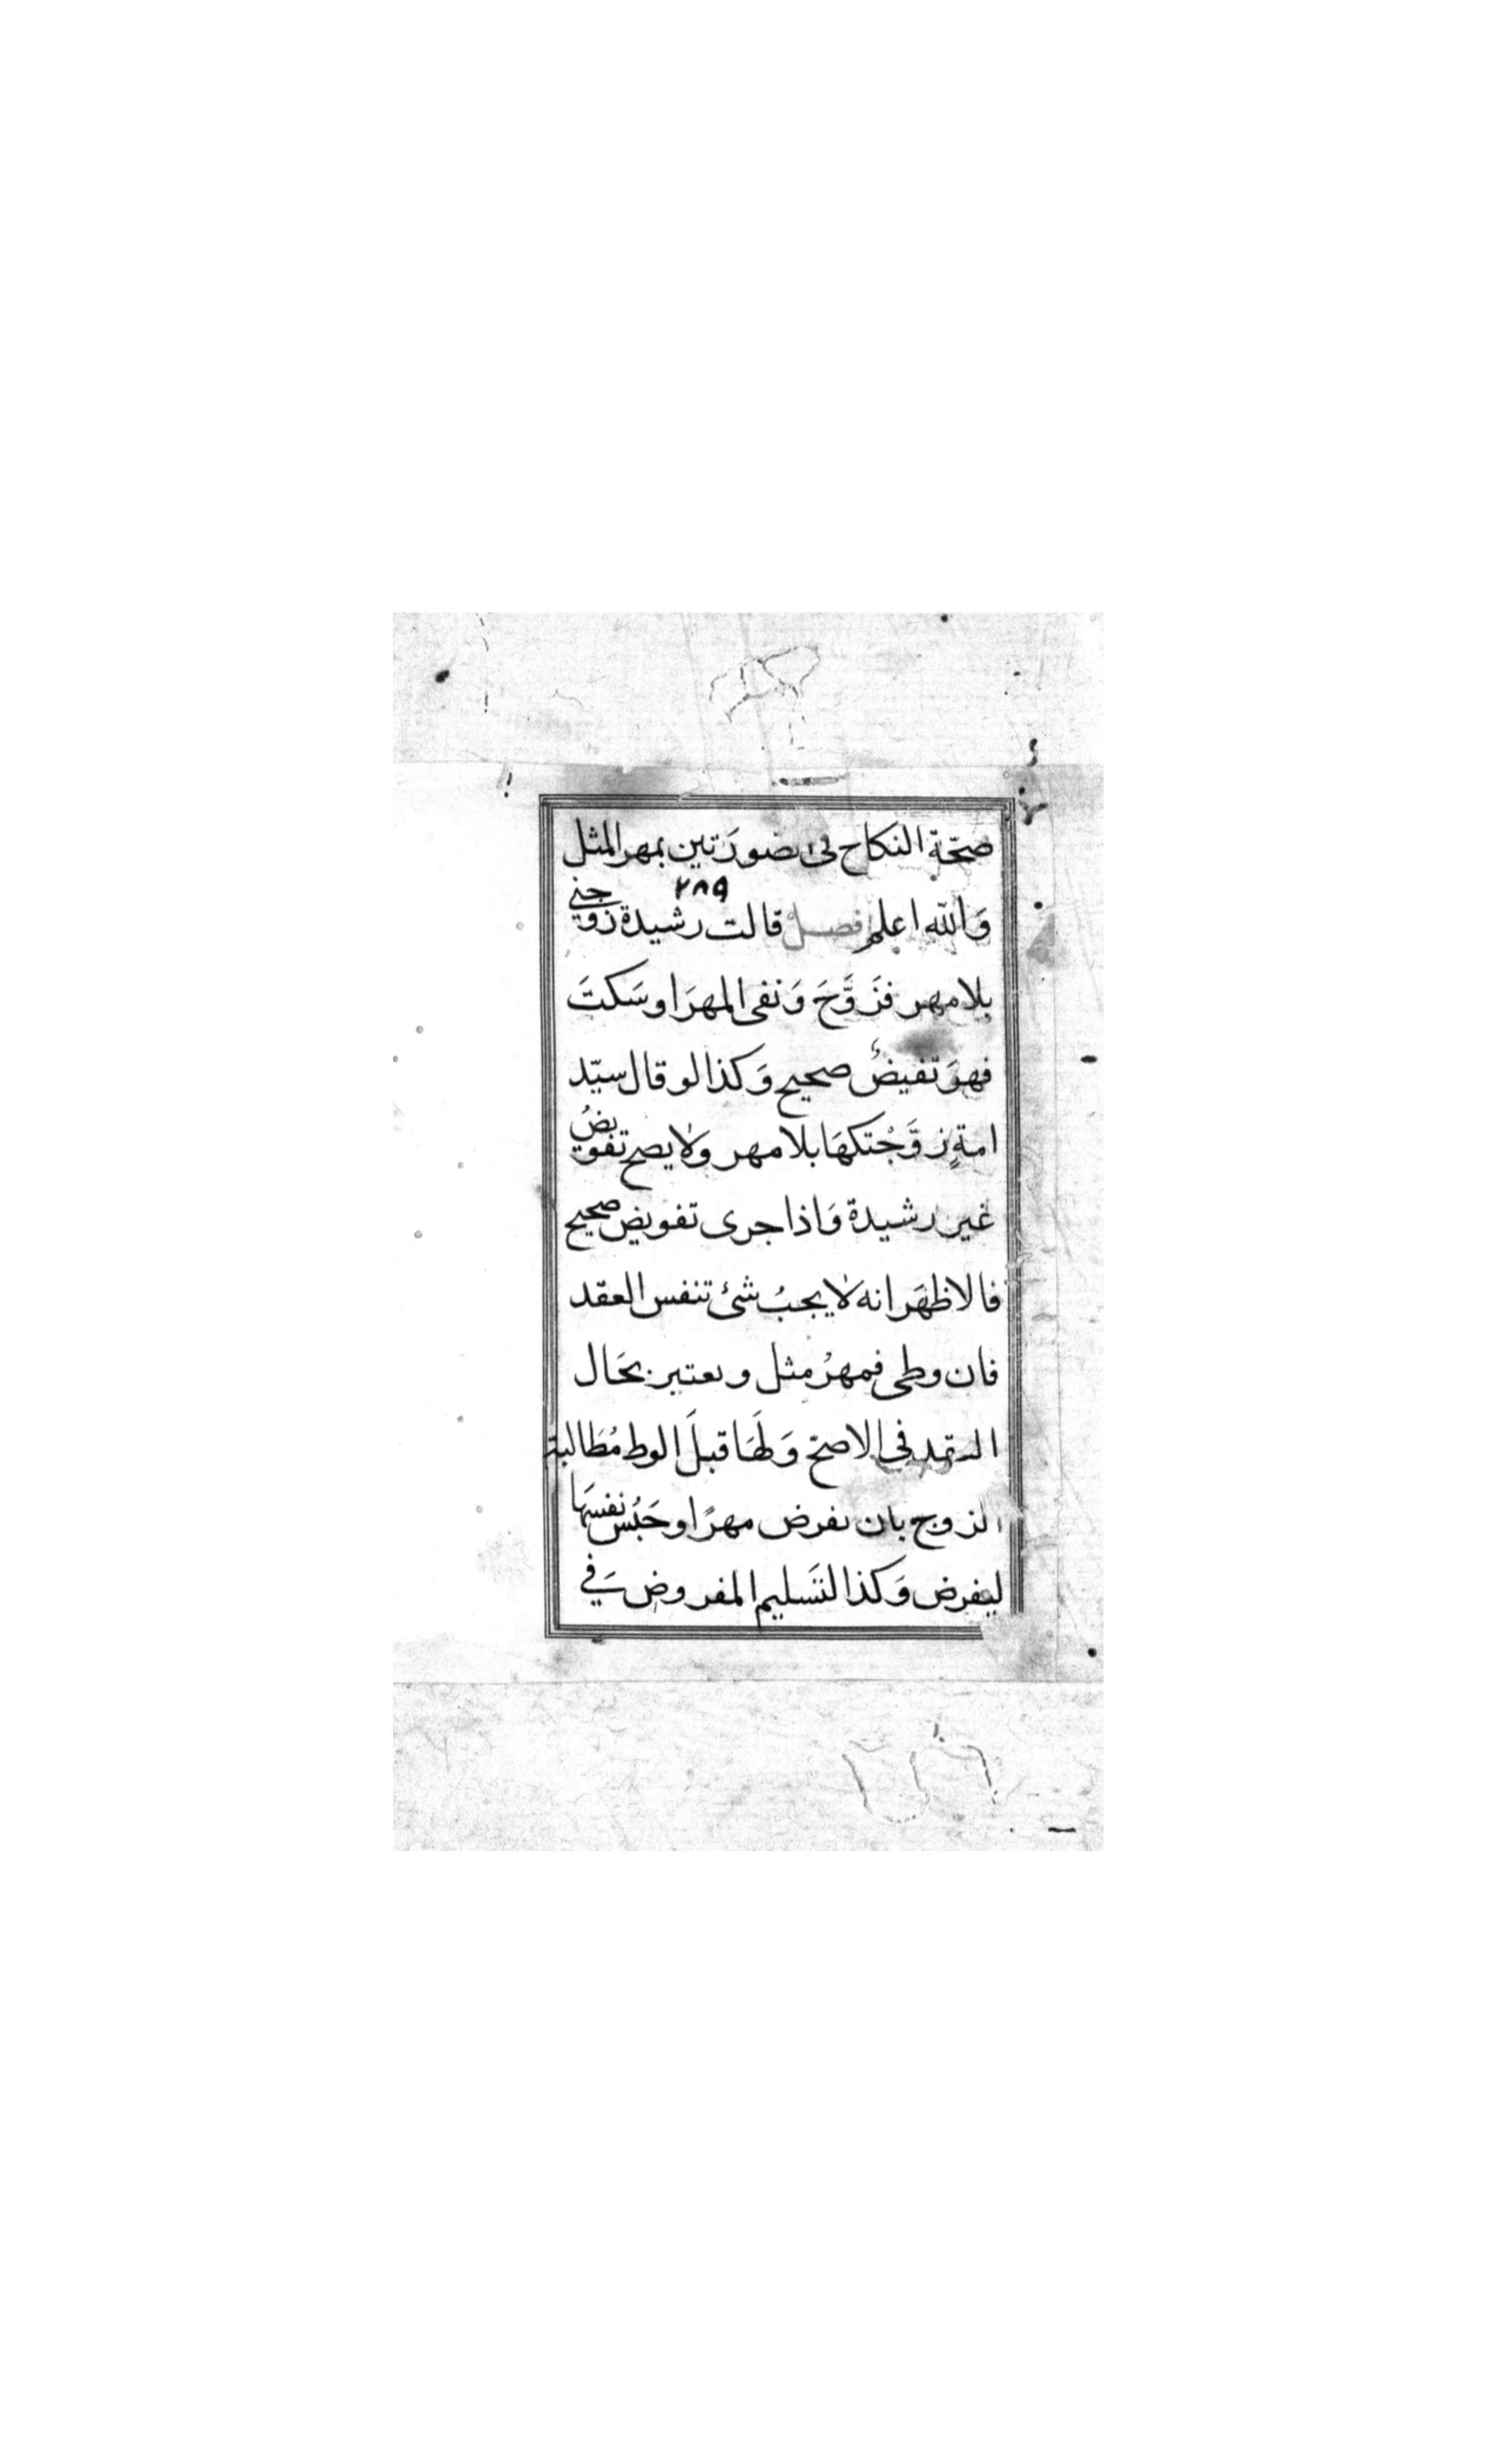 صحّة النكاح فى الصورَتين بمهر المثل
٢٨٩
وَاللّه اعلم فصلٌ قالت رشيدة زوجنى
بلا مهر فزَوَّجَ وَنفى المهرَ او سَكتَ
فهوَ تفيضٌ صحيح وَكذا لو قال سيّد
امةٍ زوَّجْتكهَا بلا مهر ولا يصح تفويضُ
غير رشيدة وَاذا جرى تفويض صحيح
فالاظهَر انه لا يجبُ شئ تنفس العقد
فان وطى فمهرُ مثل ويعتبر بحَال
العقد فى الاصحّ وَلهَا قبلَ الوط مُطَالبة
الزوج بان يفرض مهرًا وحَبْس نفسهَا
ليفرض وَكذا لتَسليم المفروض فَي